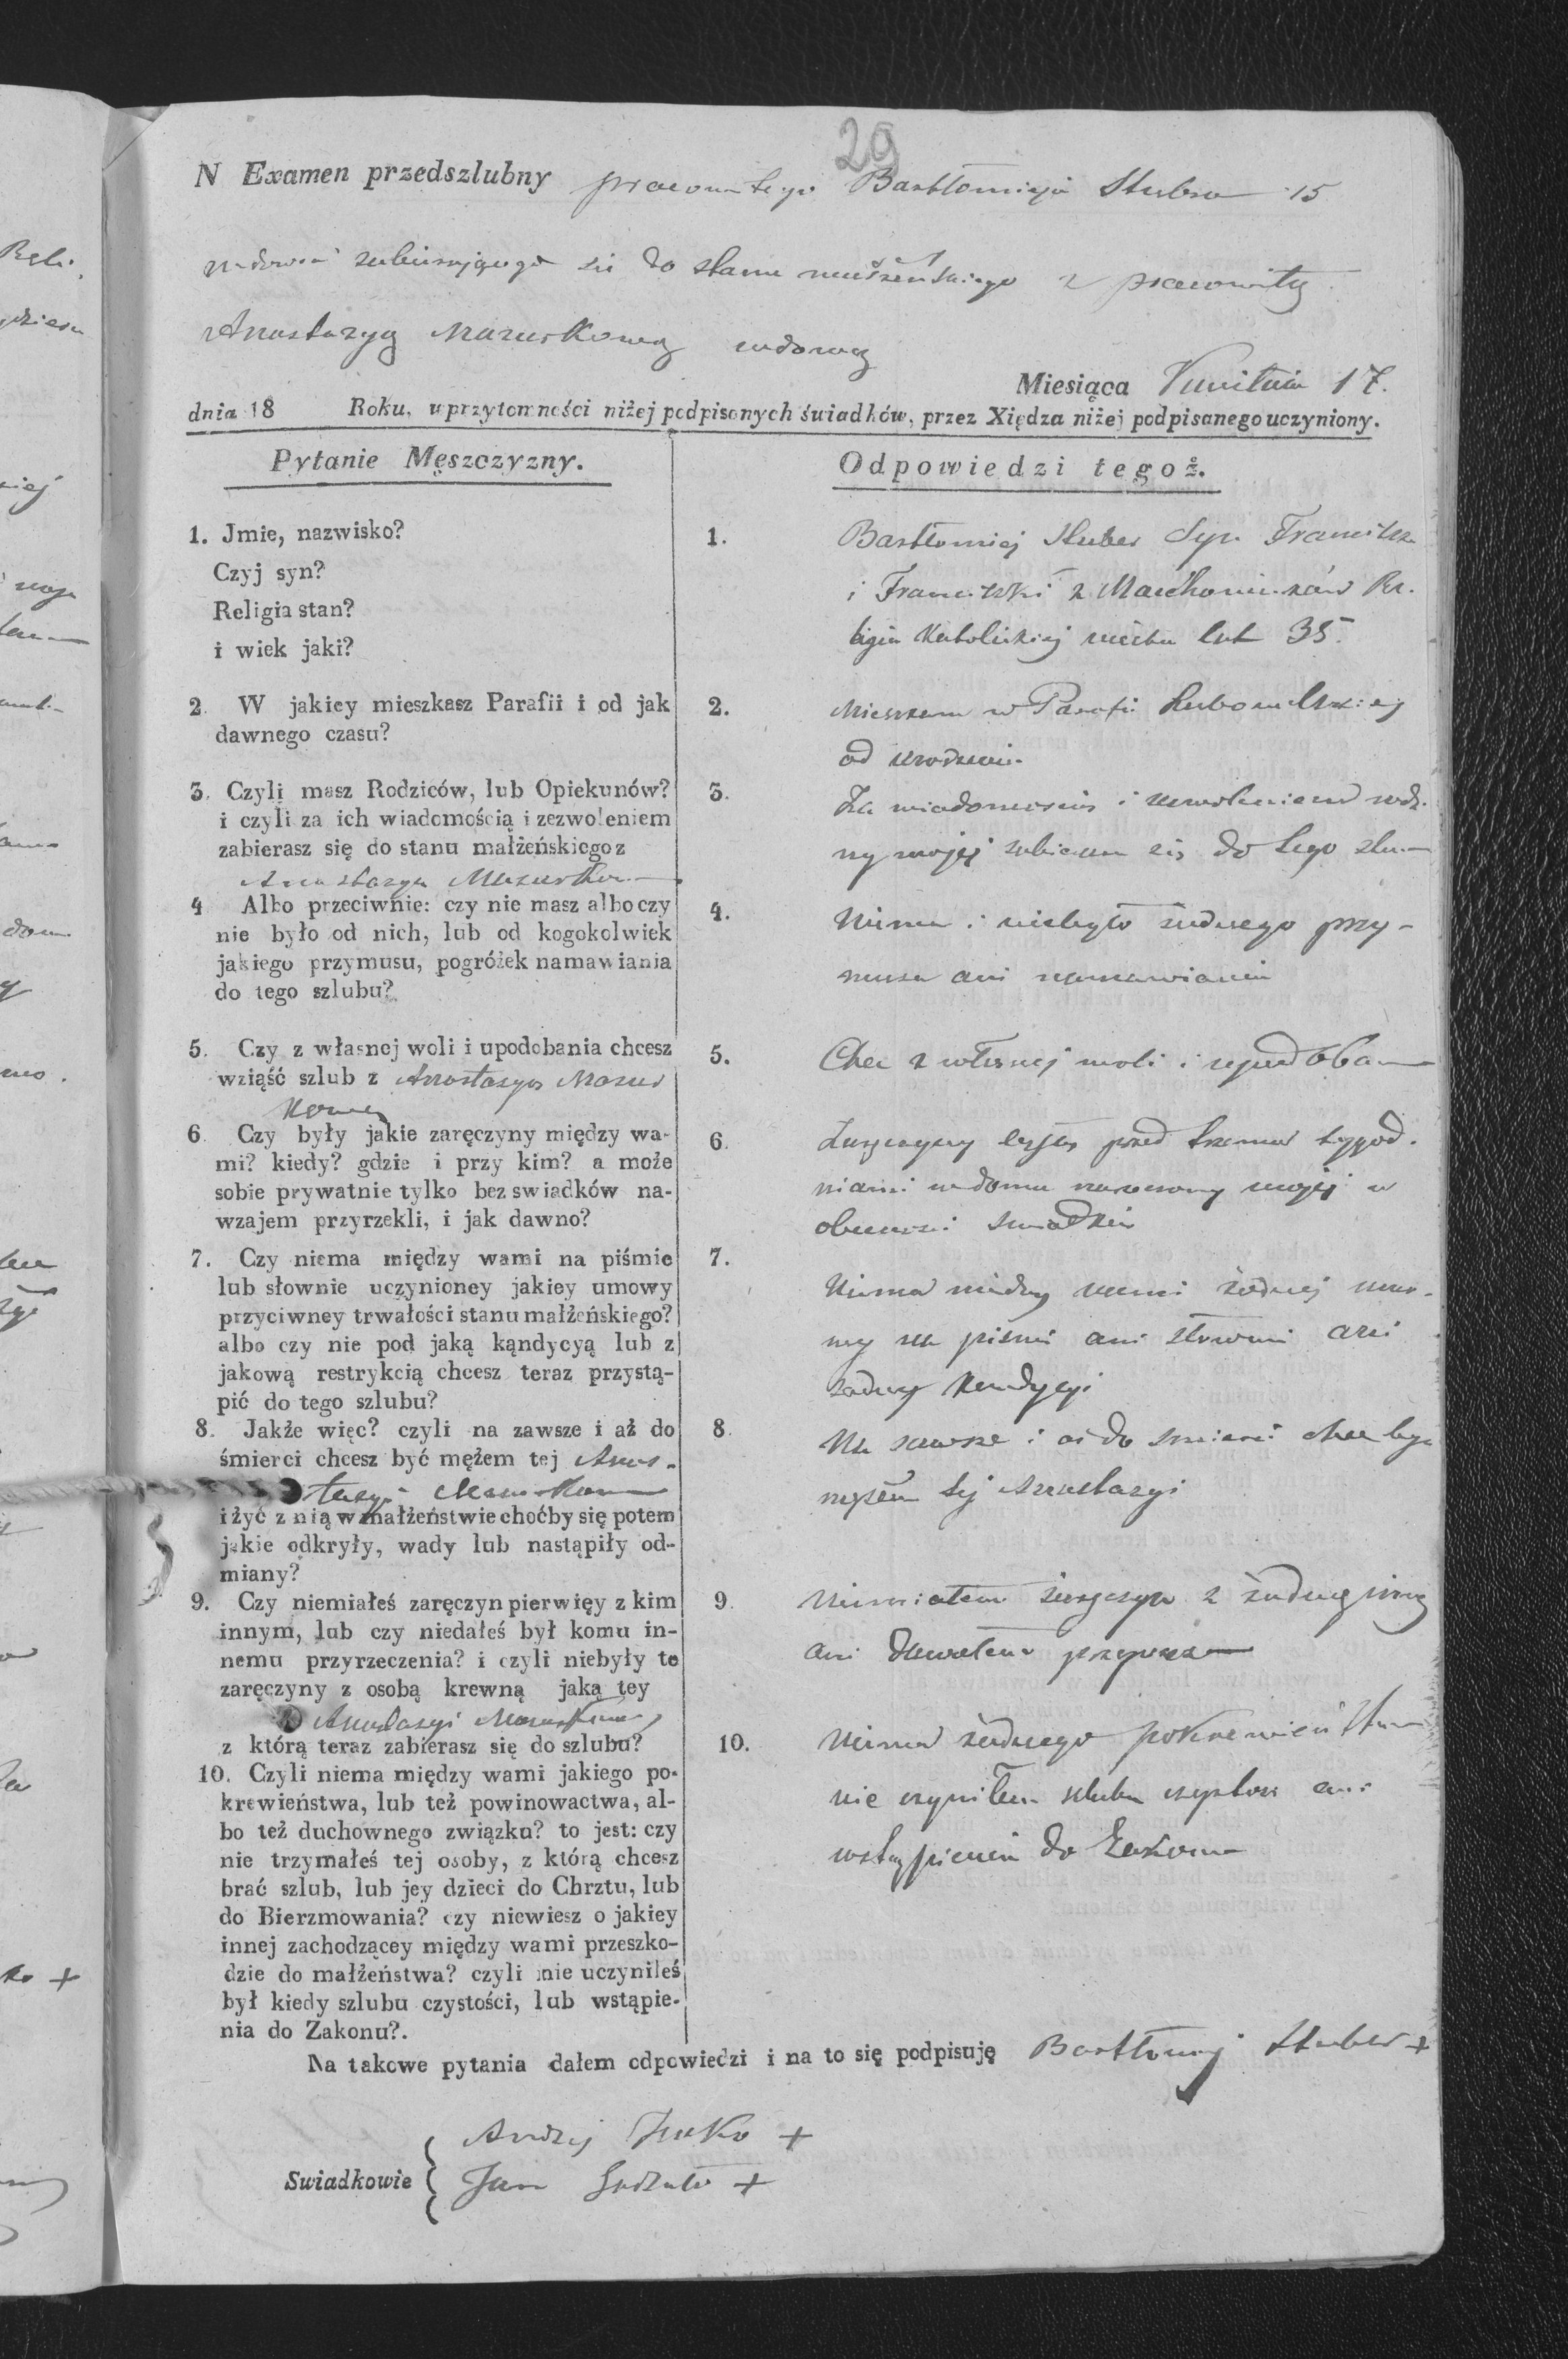 29
N Examen przedszlubny pracowitego Bartłomieja Hubra 15
wdowca zabierającego się do stanu małżeńskiego z pracowitą
Anastazyą Mazurkową wdową
Miesiąca Kwietnia 17.
dnia 18 Roku, w przytomności niżej podpisanych świadków, przez Xiędza niżej podpisanego uczyniony.
Pytanie Męszczyzny.
Odpowiedzi tegoż.
1. Jmie, nazwisko?
Czyj syn?
Religia stan?
i wiek jaki?
1. Bartłomiej Huber Syn Franciszka
i Franciszki z Re-
ligia Katolickiej wieku lat 35.
2. W jakiey mieszkasz Parafii i od jak
dawnego czasu?
2. Mieszkam w Parafii
od urodzenia
3. Czyli masz Rodziców, lub Opiekunów?
i czyli za ich wiadomością i zezwoleniem
zabierasz się do stanu małżeńskiego z
Anastazya Mazurkow
3. Za wiadomością i zezwoleniem rodzi-
ny mojej zabieram się do tego stanu
4 Albo przeciwnie: czy nie masz albo czy
nie było od nich, lub od kogokolwiek
jakiego przymusu, pogróżek namawiania
do tego szlubu?
4. Niema i niebyło żadnego przy-
musu ani namawiania
5. Czy z własnej woli i upodobania chcesz
wziąść szlub z Anastazyą Mazur
kową
5. Chcę z własnej woli i upodoba
6. Czy były jakie zaręczyny między wa-
mi? kiedy? gdzie i przy kim? a może
sobie prywatnie tylko bez swiadków na-
wzajem przyrzekli, i jak dawno?
6. Zaręczyny były przed trzema tygod-
niami w domu narzeczony mojej w
obecności swiadków
7. Czy niema między wami na piśmie
lub słownie uczynioney jakiey umowy
przyciwney trwałości stanu małżeńskiego?
albo czy nie pod jaką kąndycyą lub z
jakową restrykcią chcesz teraz przystą-
pić do tego szlubu?
7. Niema między nami żadnej umo-
wy na piśmie ani słownie ani
żadny kondycyi
8. Jakże więc? czyli na zawsze i aż do
śmierci chcesz być mężem tej Anas-
tazyi Mazurkow
i żyć z nią w małżeństwie choćby się potem
jakie odkryły, wady lub nastąpiły od-
miany?
8. Na zawsze i aż do śmierci chcę być
mężem tej Anastazyi
9. Czy niemiałeś zaręczyn pierwięy z kim
innym, lub czy niedałeś był komu in-
nemu przyrzeczenia? i czyli niebyły te
zaręczyny z osobą krewną jaką tey
Anastazyi Mazurkowy
z którą teraz zabierasz się do szlubu?
9. Niemiałem zaręczyn z żadną inną
ani dawałem
10. Czyli niema między wami jakiego po-
krewieństwa, lub też powinowactwa, al-
bo też duchownego związku? to jest: czy
nie trzymałeś tej osoby, z którą chcesz
brać szlub, lub jey dzieci do Chrztu, lub
do Bierzmowania? czy niewiesz o jakiey
innej zachodzącey między wami przeszko-
dzie do małżeństwa? czyli nie uczyniłeś
był kiedy szlubu czystości, lub wstąpie-
nia do Zakonu?.
10. Niema żadnego pokrewieństwa
nie czyniłem szlubu czystości ani
wstąpienia do Zakonu
Na takowe pytania dałem odpowiedzi i na to się podpisuję Bartłomiej Huber +
Swiadkowie
Andrzej +
Jan +